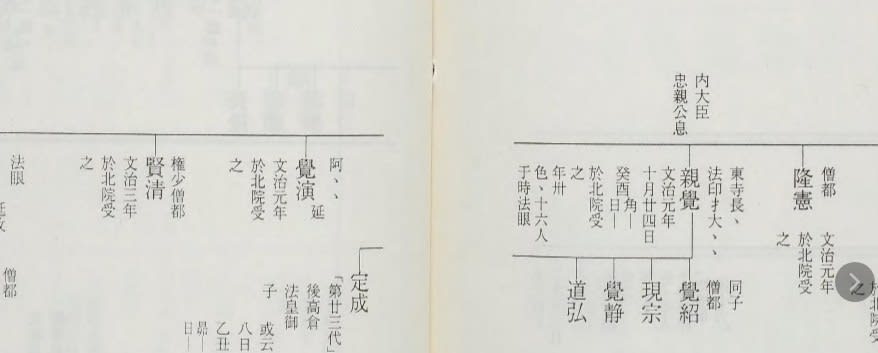 内大臣
忠親公息
僧都
隆憲
文治元年
於北院受
之
於北院
之
東寺長、
法印才大、、
親覺
文治元年
十月廿四日
癸酉角―
日―
於北院受
之
年卅
色、十六人
于時法眼
同子
僧都
覺紹
現宗
覺静
道弘
阿、、
延
覺演
文治元年
於北院受
之
権少僧都
賢清
文治三年
於北院受
之
法眼
定成
「第廿三代」
後高倉
法皇御
子
或云
八日
乙丑
昴―
日―
僧都